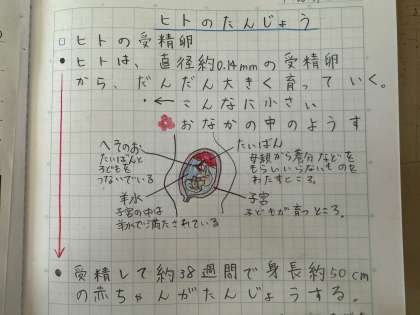 ヒトのたんじょう
□ヒトの受精卵
●ヒトは、直径約0.14mmの受精卵
から、だんだん大きく育っていく。
・←こんなに小さい
おなかの中のようす
へそのお
たいばんと
子どもを
つないでいる
たいばん
母親から養分などを
もらいいらないものを
わたすところ。
羊水
子宮の中は
羊水で満たされている
子宮
子どもが育つところ。
●受精して約38週間で身長約50cm
の赤ちゃんがたんじょうする。